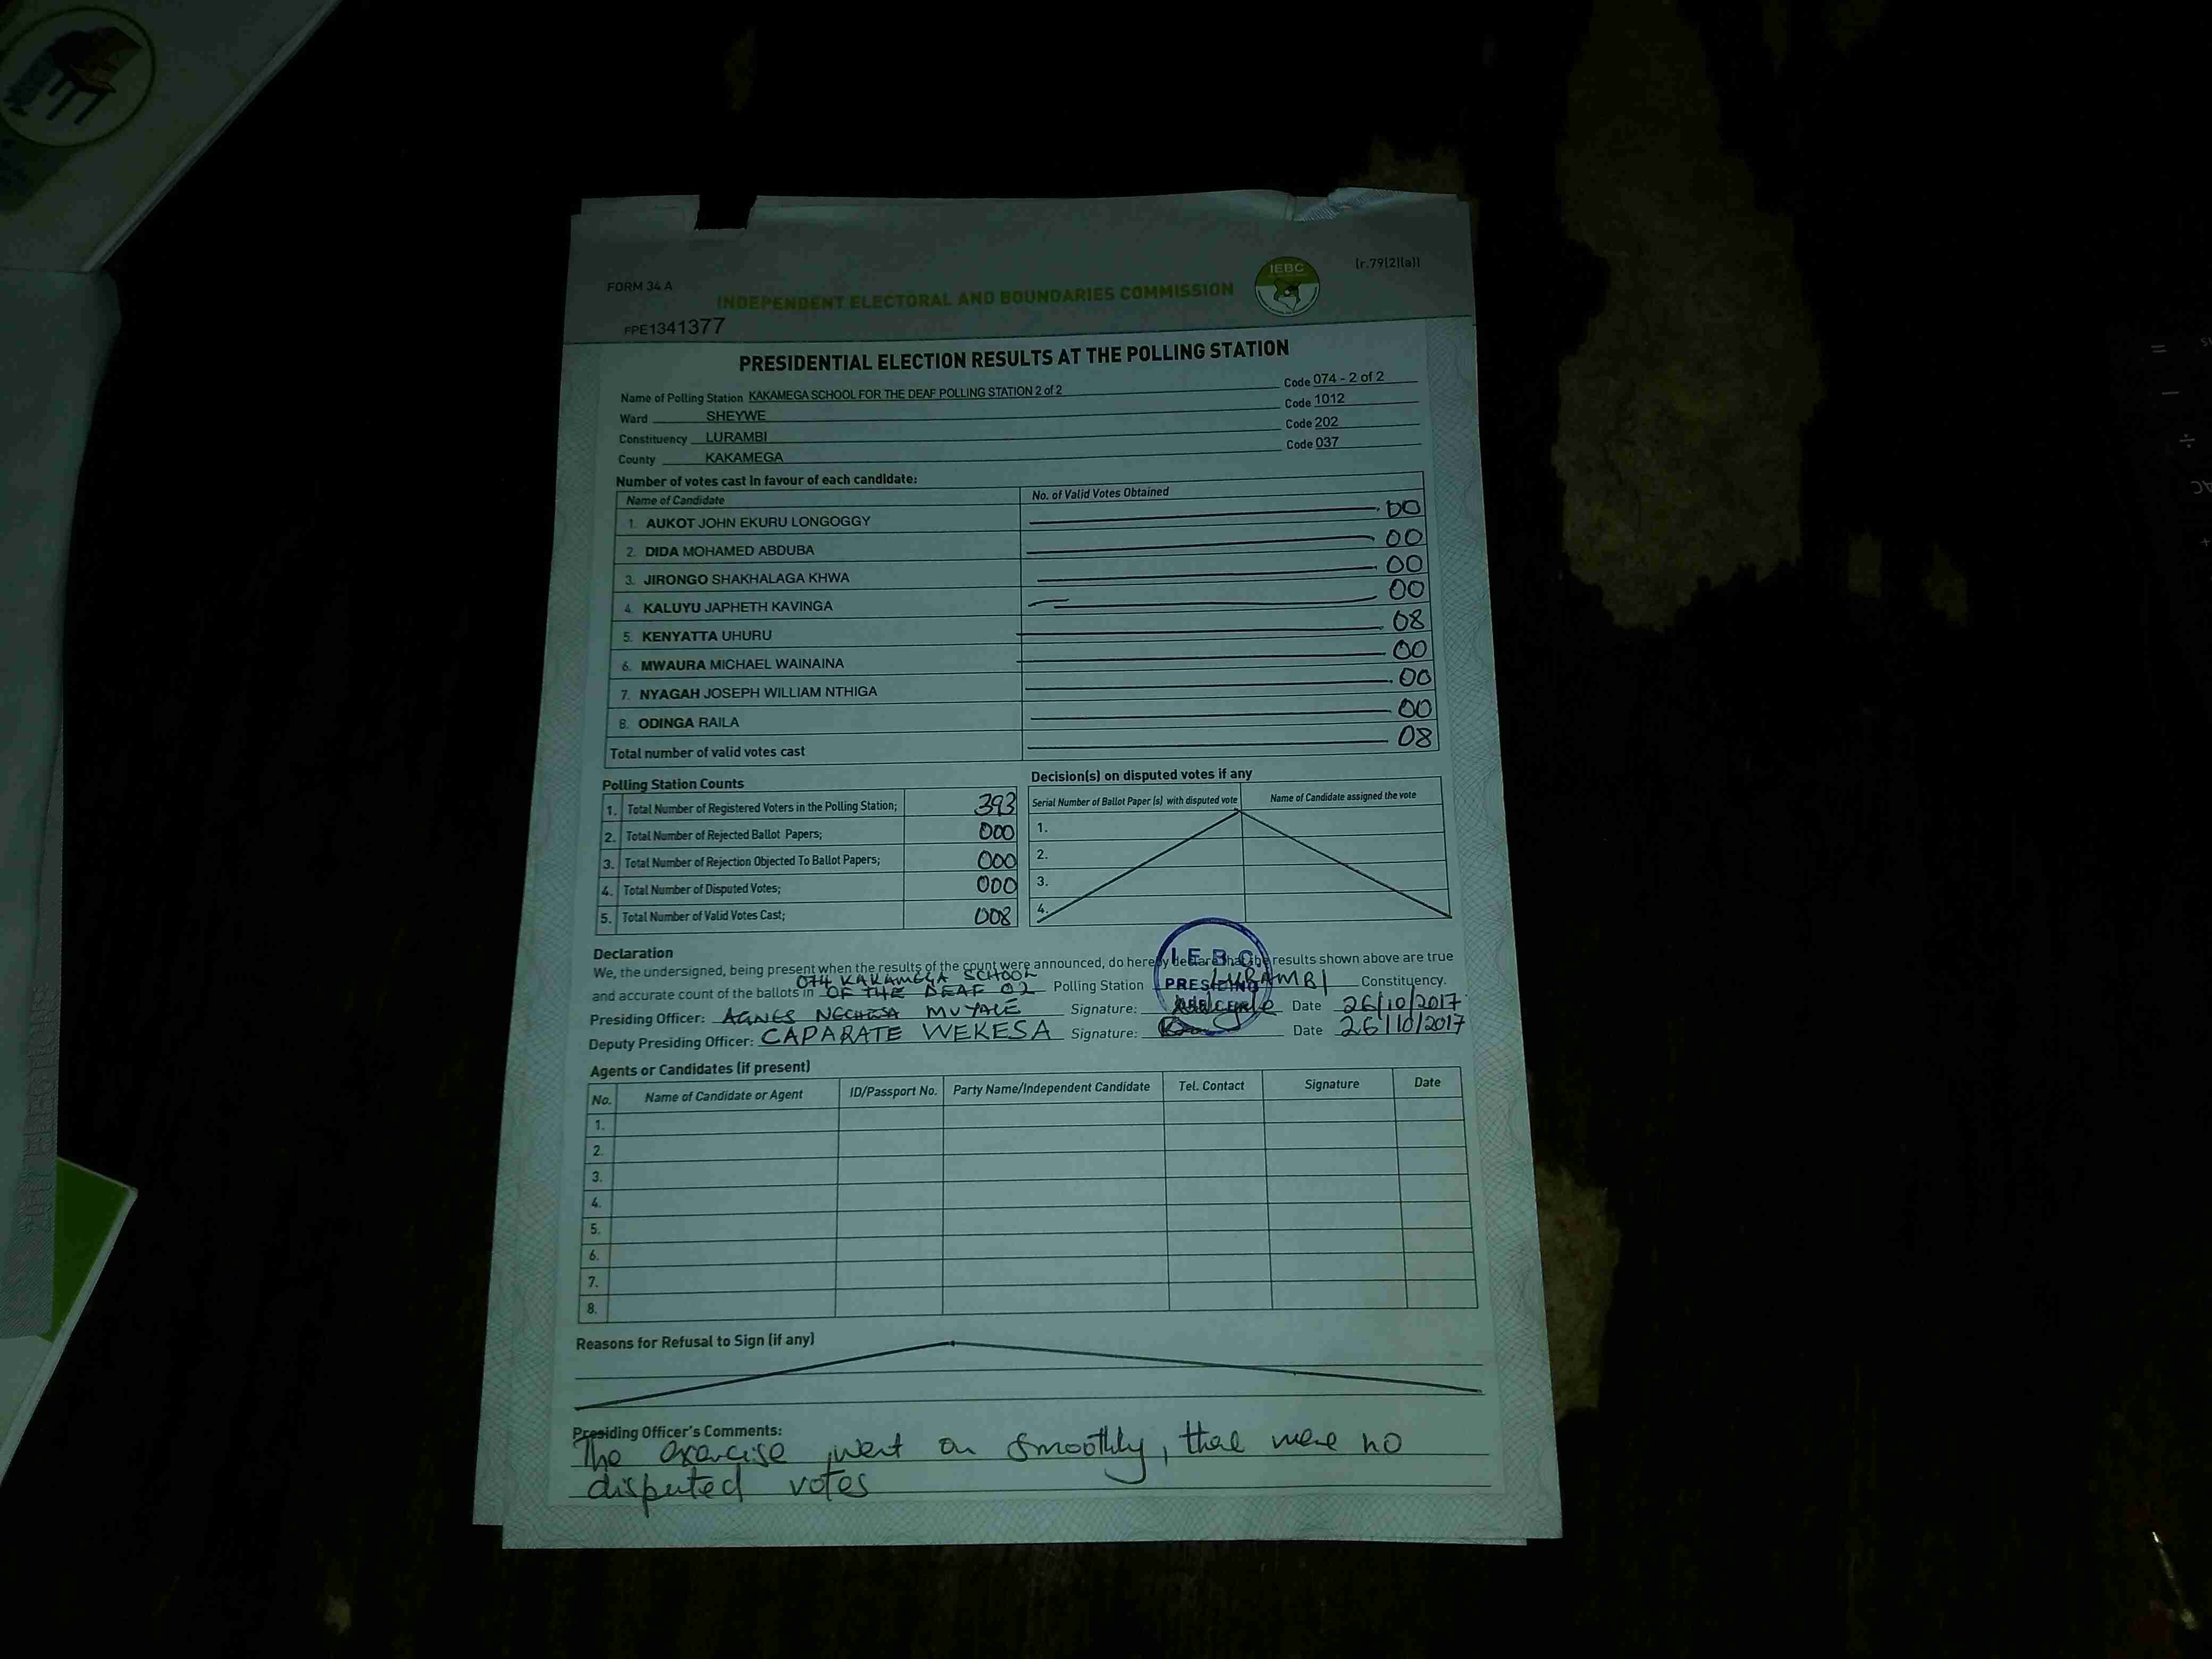 FORM 34 A
(r.79(2)(a))
IEBC
INDEPENDENT ELECTORAL AND BOUNDARIES COMMISSION
FPE1341377
PRESIDENTIAL ELECTION RESULTS AT THE POLLING STATION
Name of Polling Station KAKAMEGA SCHOOL FOR THE DEAF POLLING STATION 2 of 2 Code 074 - 2 of 2
Ward SHEYWE Code 1012
Constituency LURAMBI Code 202
County KAKAMEGA Code 037
Number of votes cast in favour of each candidate:
Name of Candidate No. of Valid Votes Obtained
1. AUKOT JOHN EKURU LONGOGGY 00
2. DIDA MOHAMED ABDUBA 00
3. JIRONGO SHAKHALAGA KHWA 00
4. KALUYU JAPHETH KAVINGA 00
5. KENYATTA UHURU 08
6. MWAURA MICHAEL WAINAINA 00
7. NYAGAH JOSEPH WILLIAM NTHIGA 00
8. ODINGA RAILA 00
Total number of valid votes cast 08
Polling Station Counts
1. Total Number of Registered Voters in the Polling Station; 393
2. Total Number of Rejected Ballot Papers; 000
3. Total Number of Rejection Objected To Ballot Papers; 000
4. Total Number of Disputed Votes; 000
5. Total Number of Valid Votes Cast; 008
Decision(s) on disputed votes if any
Serial Number of Ballot Paper (s) with disputed vote Name of Candidate assigned the vote
1.
2.
3.
4.
Declaration
We, the undersigned, being present when the results of the count were announced, do hereby declare that the results shown above are true
074 KAKAMEGA SCHOOL
and accurate count of the ballots in OF THE DEAF 02 Polling Station LURAMBI Constituency.
I.E.B.C
PRESIDING
Presiding Officer: AGNES NECHESA MUYALE Signature: Date 26/10/2017
Deputy Presiding Officer: CAPARATE WEKESA Signature: Date 26/10/2017
Agents or Candidates (if present)
No. Name of Candidate or Agent ID/Passport No. Party Name/Independent Candidate Tel. Contact Signature Date
1.
2.
3.
4.
5.
6.
7.
8.
Reasons for Refusal to Sign (if any)
Presiding Officer's Comments:
The exercise went on smoothly, there were no
disputed votes